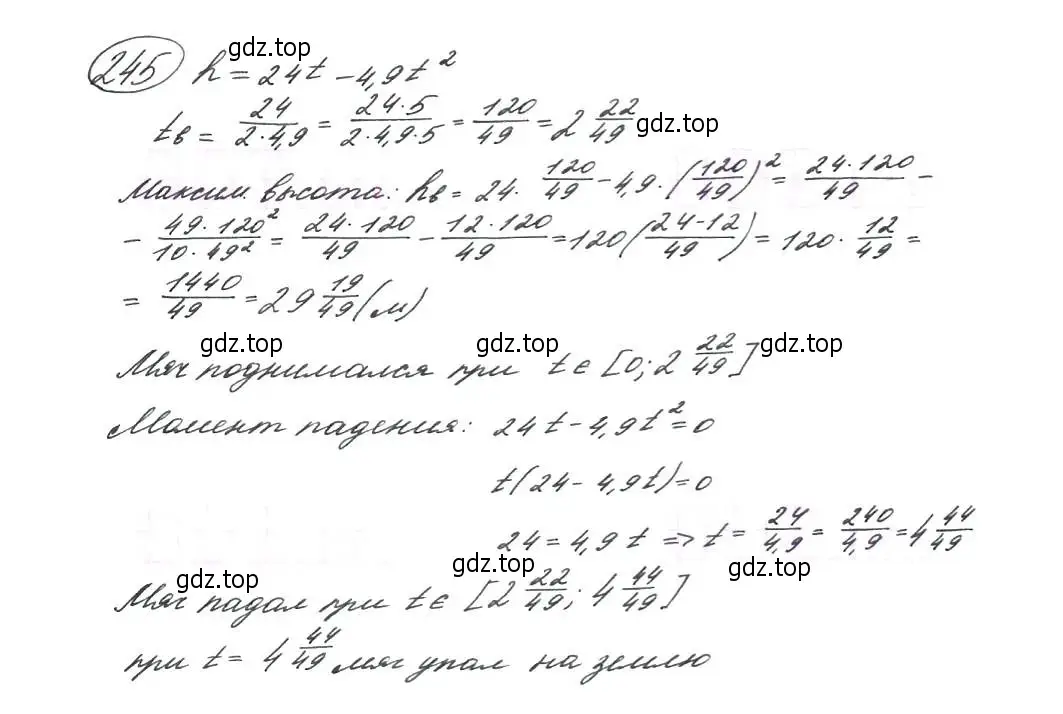 gdz.top
245 h = 24t - 4,9t²
tв = 24/(2·4,9) = (24·5)/(2·4,9·5) = 120/49 = 2 22/49 gdz.top
Максим. высота: hв = 24 · 120/49 - 4,9 · (120/49)² = (24·120)/49 -
- (49·120²)/(10·49²) = (24·120)/49 - (12·120)/49 = 120((24-12)/49) = 120 · 12/49 =
= 1440/49 = 29 19/49 (м)
gdz.top gdz.top gdz.top
Мяч поднимался при t ∈ [0; 2 22/49]
Момент падения: 24t - 4,9t² = 0
t(24 - 4,9t) = 0
24 = 4,9t => t = 24/4,9 = 240/4,9 = 4 44/49
gdz.top gdz.top gdz.top
Мяч падал при t ∈ [2 22/49; 4 44/49]
при t = 4 44/49 мяч упал на землю